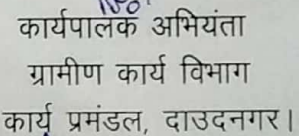 कार्यपालक अभियंता
ग्रामीण कार्य विभाग
कार्य प्रमंडल, दाउदनगर।